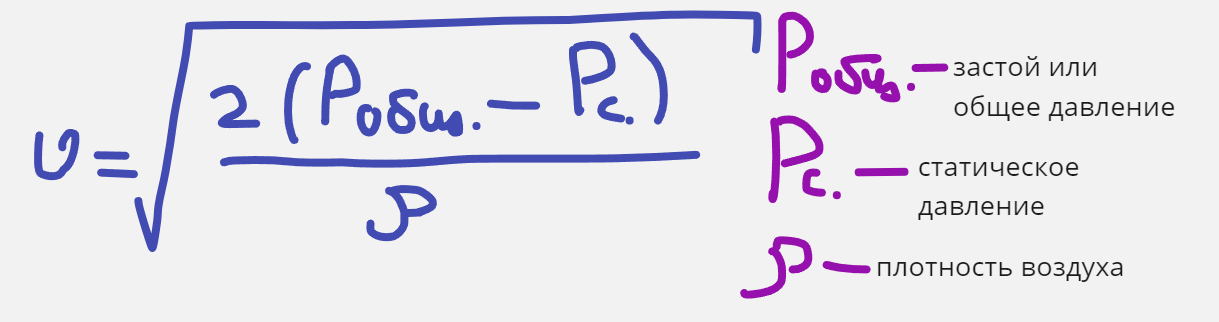 υ = √ 2 (Pобщ. − Pс.) / ρ
Pобщ. — застой или
общее давление
Pс. — статическое
давление
ρ — плотность воздуха